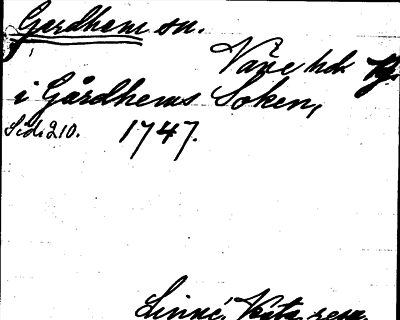 Gerdhem sn.
Väne hd.
i Gårdhems Soken,
Sid: 210. 1747.
Linné, Västg. resa